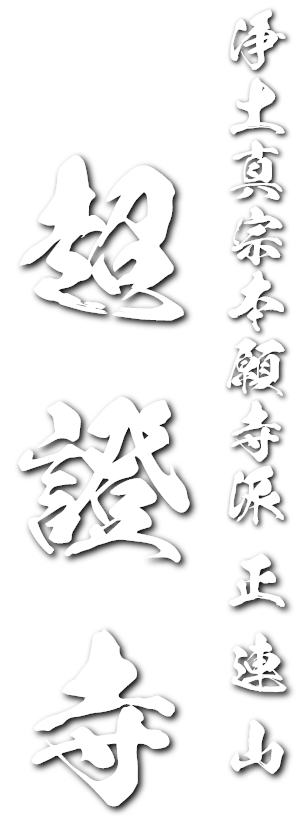 浄土真宗本願寺派 正連山
超證寺